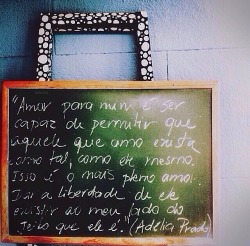 "Amor para mim é ser
capaz de permitir que
aquele que amo exista
como tal, como ele mesmo.
Isso é o mais pleno amor.
Dar a liberdade de ele
existir ao meu lado do
jeito que ele é". (Adélia Prado)